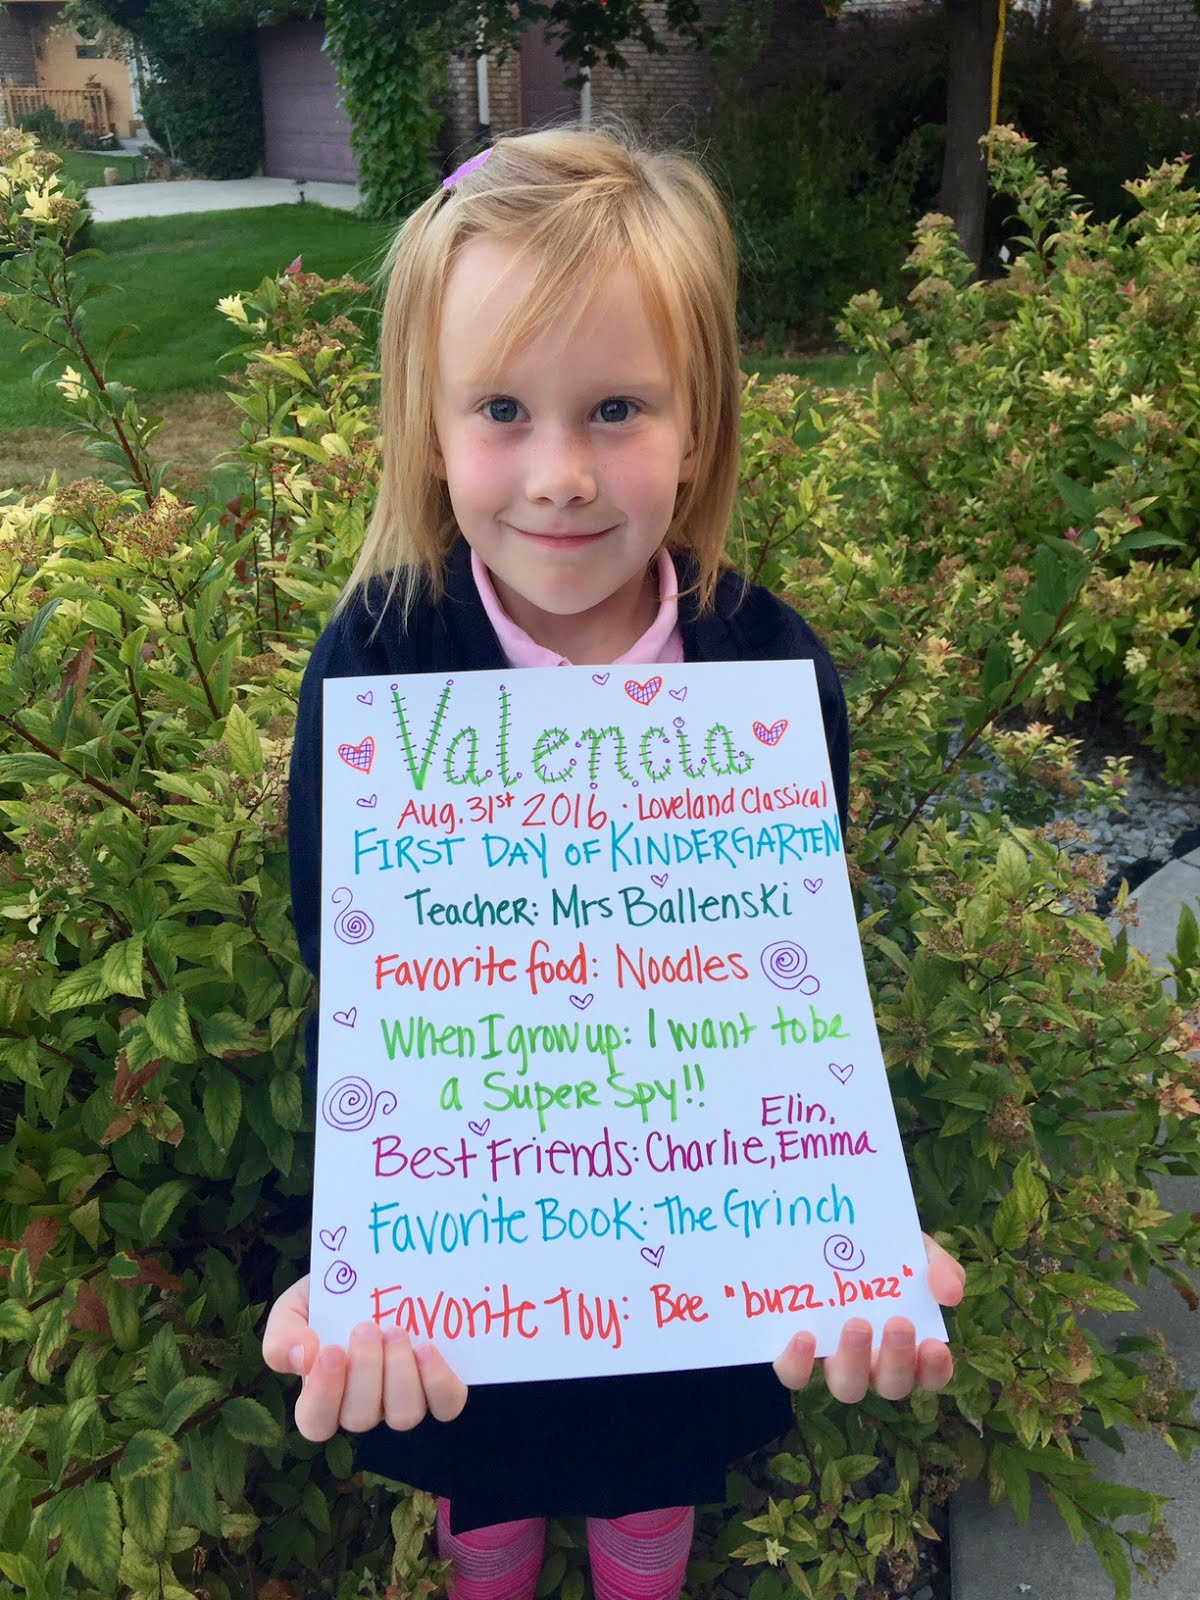 Valencia
Aug. 31st 2016 · Loveland Classical
FIRST DAY OF KINDERGARTEN
Teacher: Mrs Ballenski
Favorite food: Noodles
When I grow up: I want to be
a Super Spy!!
Elin,
Best Friends: Charlie, Emma
Favorite Book: The Grinch
Favorite Toy: Bee "buzz.buzz"